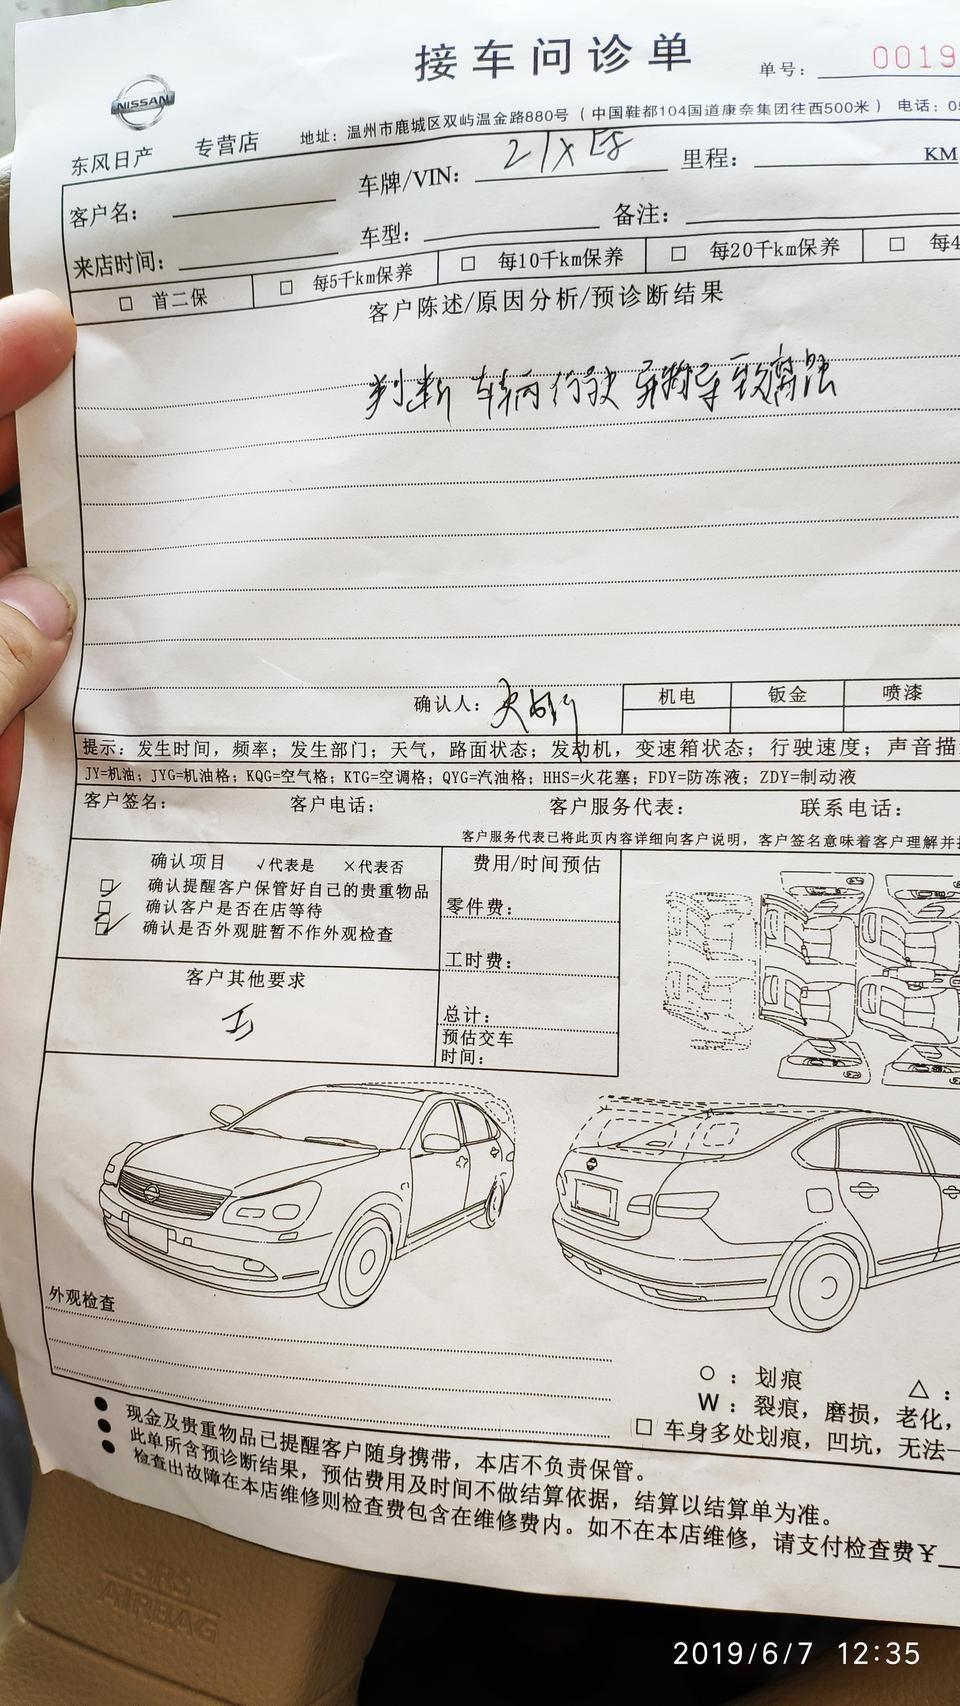 接车问诊单
单号: 0019
NISSAN
东风日产 专营店 地址: 温州市鹿城区双屿温金路880号 (中国鞋都104国道康奈集团往西500米) 电话: 05
客户名: 车牌/VIN: 里程: KM
来店时间: 车型: 备注:
□ 首二保 □ 每5千km保养 □ 每10千km保养 □ 每20千km保养 □ 每4
客户陈述/原因分析/预诊断结果
判断 车辆行驶 异物导致腐蚀
确认人: 机电 钣金 喷漆
提示: 发生时间, 频率; 发生部门; 天气, 路面状态; 发动机, 变速箱状态; 行驶速度; 声音描
JY=机油; JYG=机油格; KQG=空气格; KTG=空调格; QYG=汽油格; HHS=火花塞; FDY=防冻液; ZDY=制动液
客户签名: 客户电话: 客户服务代表: 联系电话:
客户服务代表已将此页内容详细向客户说明, 客户签名意味着客户理解并
确认项目 √代表是 ×代表否 费用/时间预估
□ 确认提醒客户保管好自己的贵重物品
□ 确认客户是否在店等待 零件费:
□ 确认是否外观脏暂不作外观检查
工时费:
客户其他要求
无
总计:
预估交车
时间:
外观检查
○ : 划痕 △ :
W : 裂痕, 磨损, 老化,
□ 车身多处划痕, 凹坑, 无法一
● 现金及贵重物品已提醒客户随身携带, 本店不负责保管。
● 此单所含预诊断结果, 预估费用及时间不做结算依据, 结算以结算单为准。
● 检查出故障在本店维修则检查费包含在维修费内。如不在本店维修, 请支付检查费¥
SRS
AIRBAG
2019/6/7 12:35